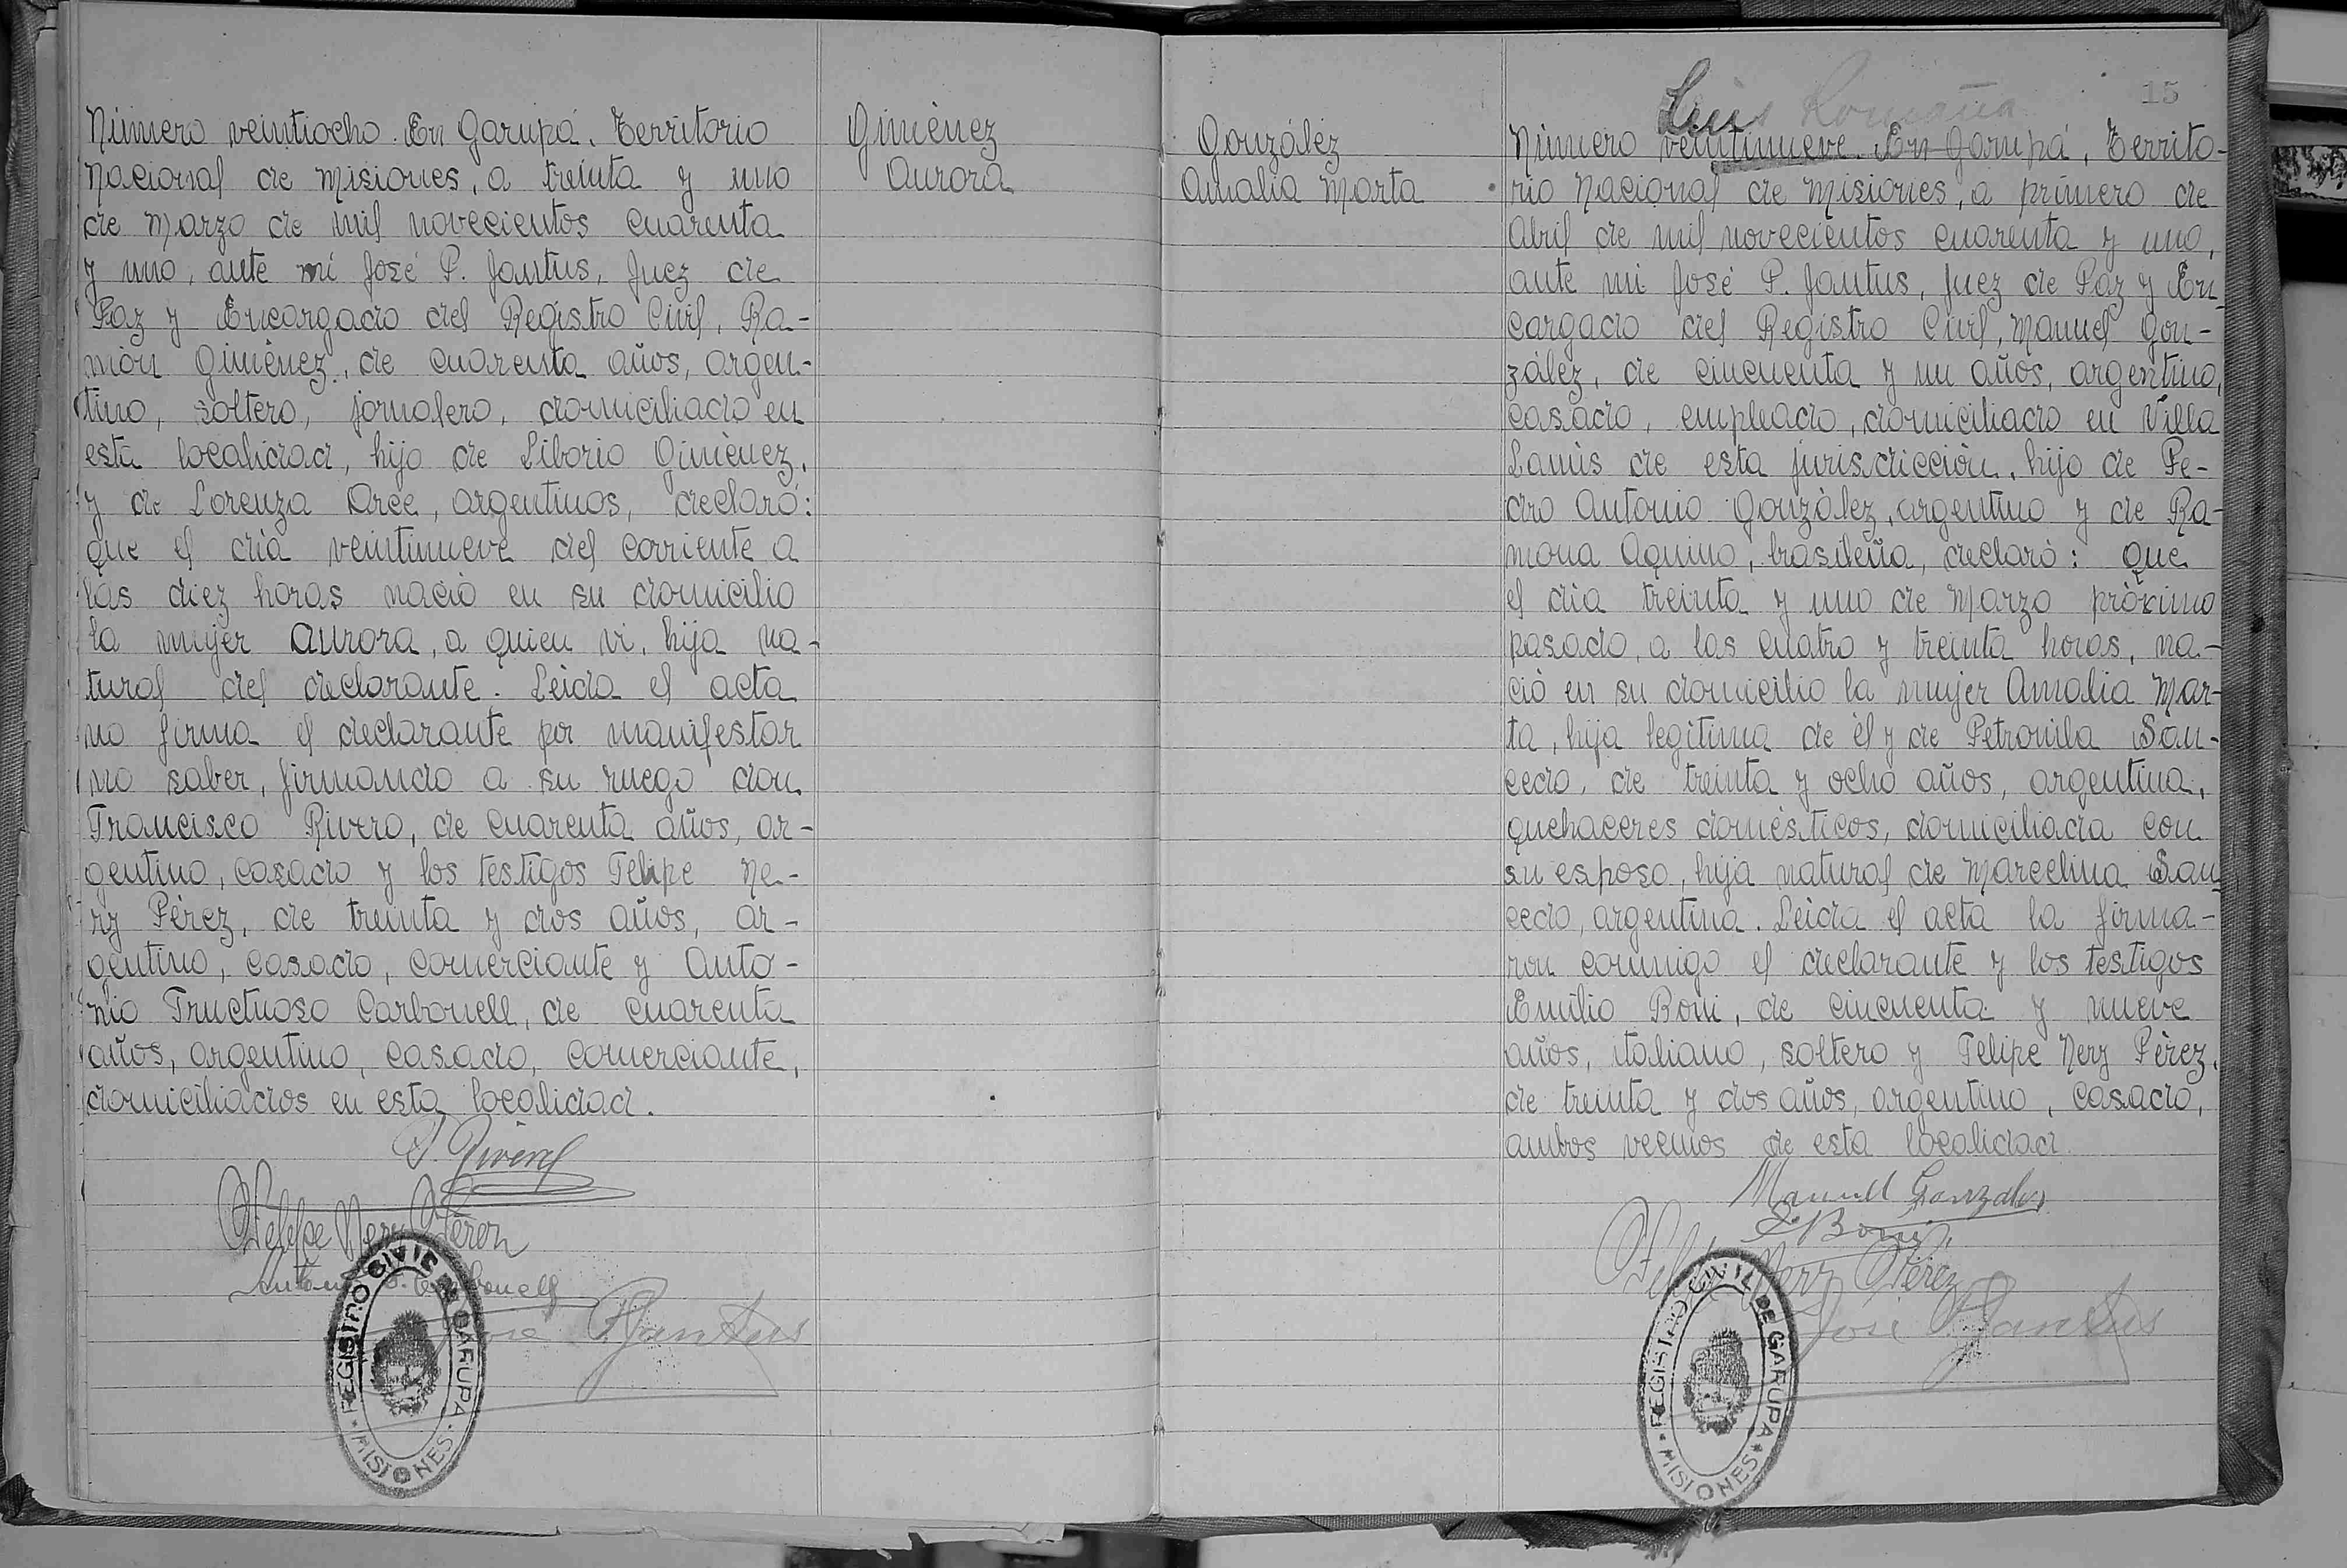 Número veintiocho. En Garupá, Territorio
Nacional de Misiones, a treinta y uno
de Marzo de mil novecientos cuarenta
y uno, ante mí José P. Jantus, Juez de
Paz y Encargado del Registro Civil, Ra-
món Giménez, de cuarenta años, argen-
tino, soltero, jornalero, domiciliado en
esta localidad, hijo de Liborio Giménez,
y de Lorenza Arce, argentinos, declaró:
que el día veintinueve del corriente a
las diez horas nació en su domicilio
la mujer Aurora, a quien vi, hija na-
tural del declarante. Leída el acta
no firma el declarante por manifestar
no saber, firmando a su ruego don
Francisco Rivero, de cuarenta años, ar-
gentino, casado y los testigos Felipe Ne-
ry Pérez, de treinta y dos años, ar-
gentino, casado, comerciante y Anto-
nio Fructuoso Carbonell, de cuarenta
años, argentino, casado, comerciante,
domiciliados en esta localidad.
Felippe Nery Pérez
Antonio F. Carbonell
José P. Jantus
REGISTRO CIVIL DE GARUPA
MISIONES
Giménez
Aurora
González
Amalia Marta
Luis Romaña
15
Número veintinueve. En Garupá, Territo-
rio Nacional de Misiones, a primero de
Abril de mil novecientos cuarenta y uno,
ante mi José P. Jantus, Juez de Paz y En
cargado del Registro Civil, Manuel Gon-
zález, de cincuenta y un años, argentino,
casado, empleado, domiciliado en Villa
Lanús de esta jurisdicción, hijo de Pe-
dro Antonio González, argentino y de Ra-
mona Aquino, brasileña, declaró: que
el día treinta y uno de Marzo próximo
pasado, a las cuatro y treinta horas, na-
ció en su domicilio la mujer Amalia Mar-
ta, hija legítima de él y de Petronila Sau-
cedo, de treinta y ocho años, argentina,
quehaceres domésticos, domiciliada con
su esposo, hija natural de Marcelina Sau
cedo, argentina. Leída el acta la firma-
ron conmigo el declarante y los testigos
Emilio Boni, de cincuenta y nueve
años, italiano, soltero y Felipe Nery Pérez,
de treinta y dos años, argentino, casado,
ambos vecinos de esta localidad
Manuel Gonzalez
E Boni
Felipe Nery Pérez
José P. Jantus
REGISTRO CIVIL DE GARUPA
MISIONES